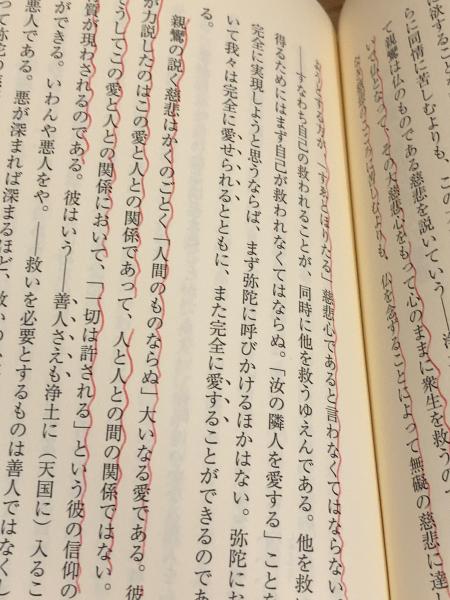 に欲することな
らに同情に苦しむよりも、
て親鸞は仏のものである慈悲を説いていう
いで仏となって、その大慈悲心をもって心のままに衆生を救うの
仏を念ずることによって無礙の慈悲に達し
「すえとほりたる」慈悲心であると言わなくてはならない。
――すなわち自己の救われることが、同時に他を救うゆえんである。他を救い
得るためにはまず自己が救われなくてはならぬ。「汝の隣人を愛する」ことを
完全に実現しようと思うならば、まず弥陀に呼びかけるほかはない。弥陀にお
いて我々は完全に愛せられるとともに、また完全に愛することができるのであ
る。
親鸞の説く慈悲はかくのごとく「人間のものならぬ」大いなる愛である。彼
が力説したのはこの愛と人との関係であって、人と人との間の関係ではない。
うしてこの愛と人との関係において、「一切は許される」という彼の信仰の
質が現わされるのである。彼はいう――善人さえも浄土に（天国に）入るこ
ができる。いわんや悪人をや。――救いを必要とするものは善人ではなくし
悪人である。悪が深まれば深まるほど、